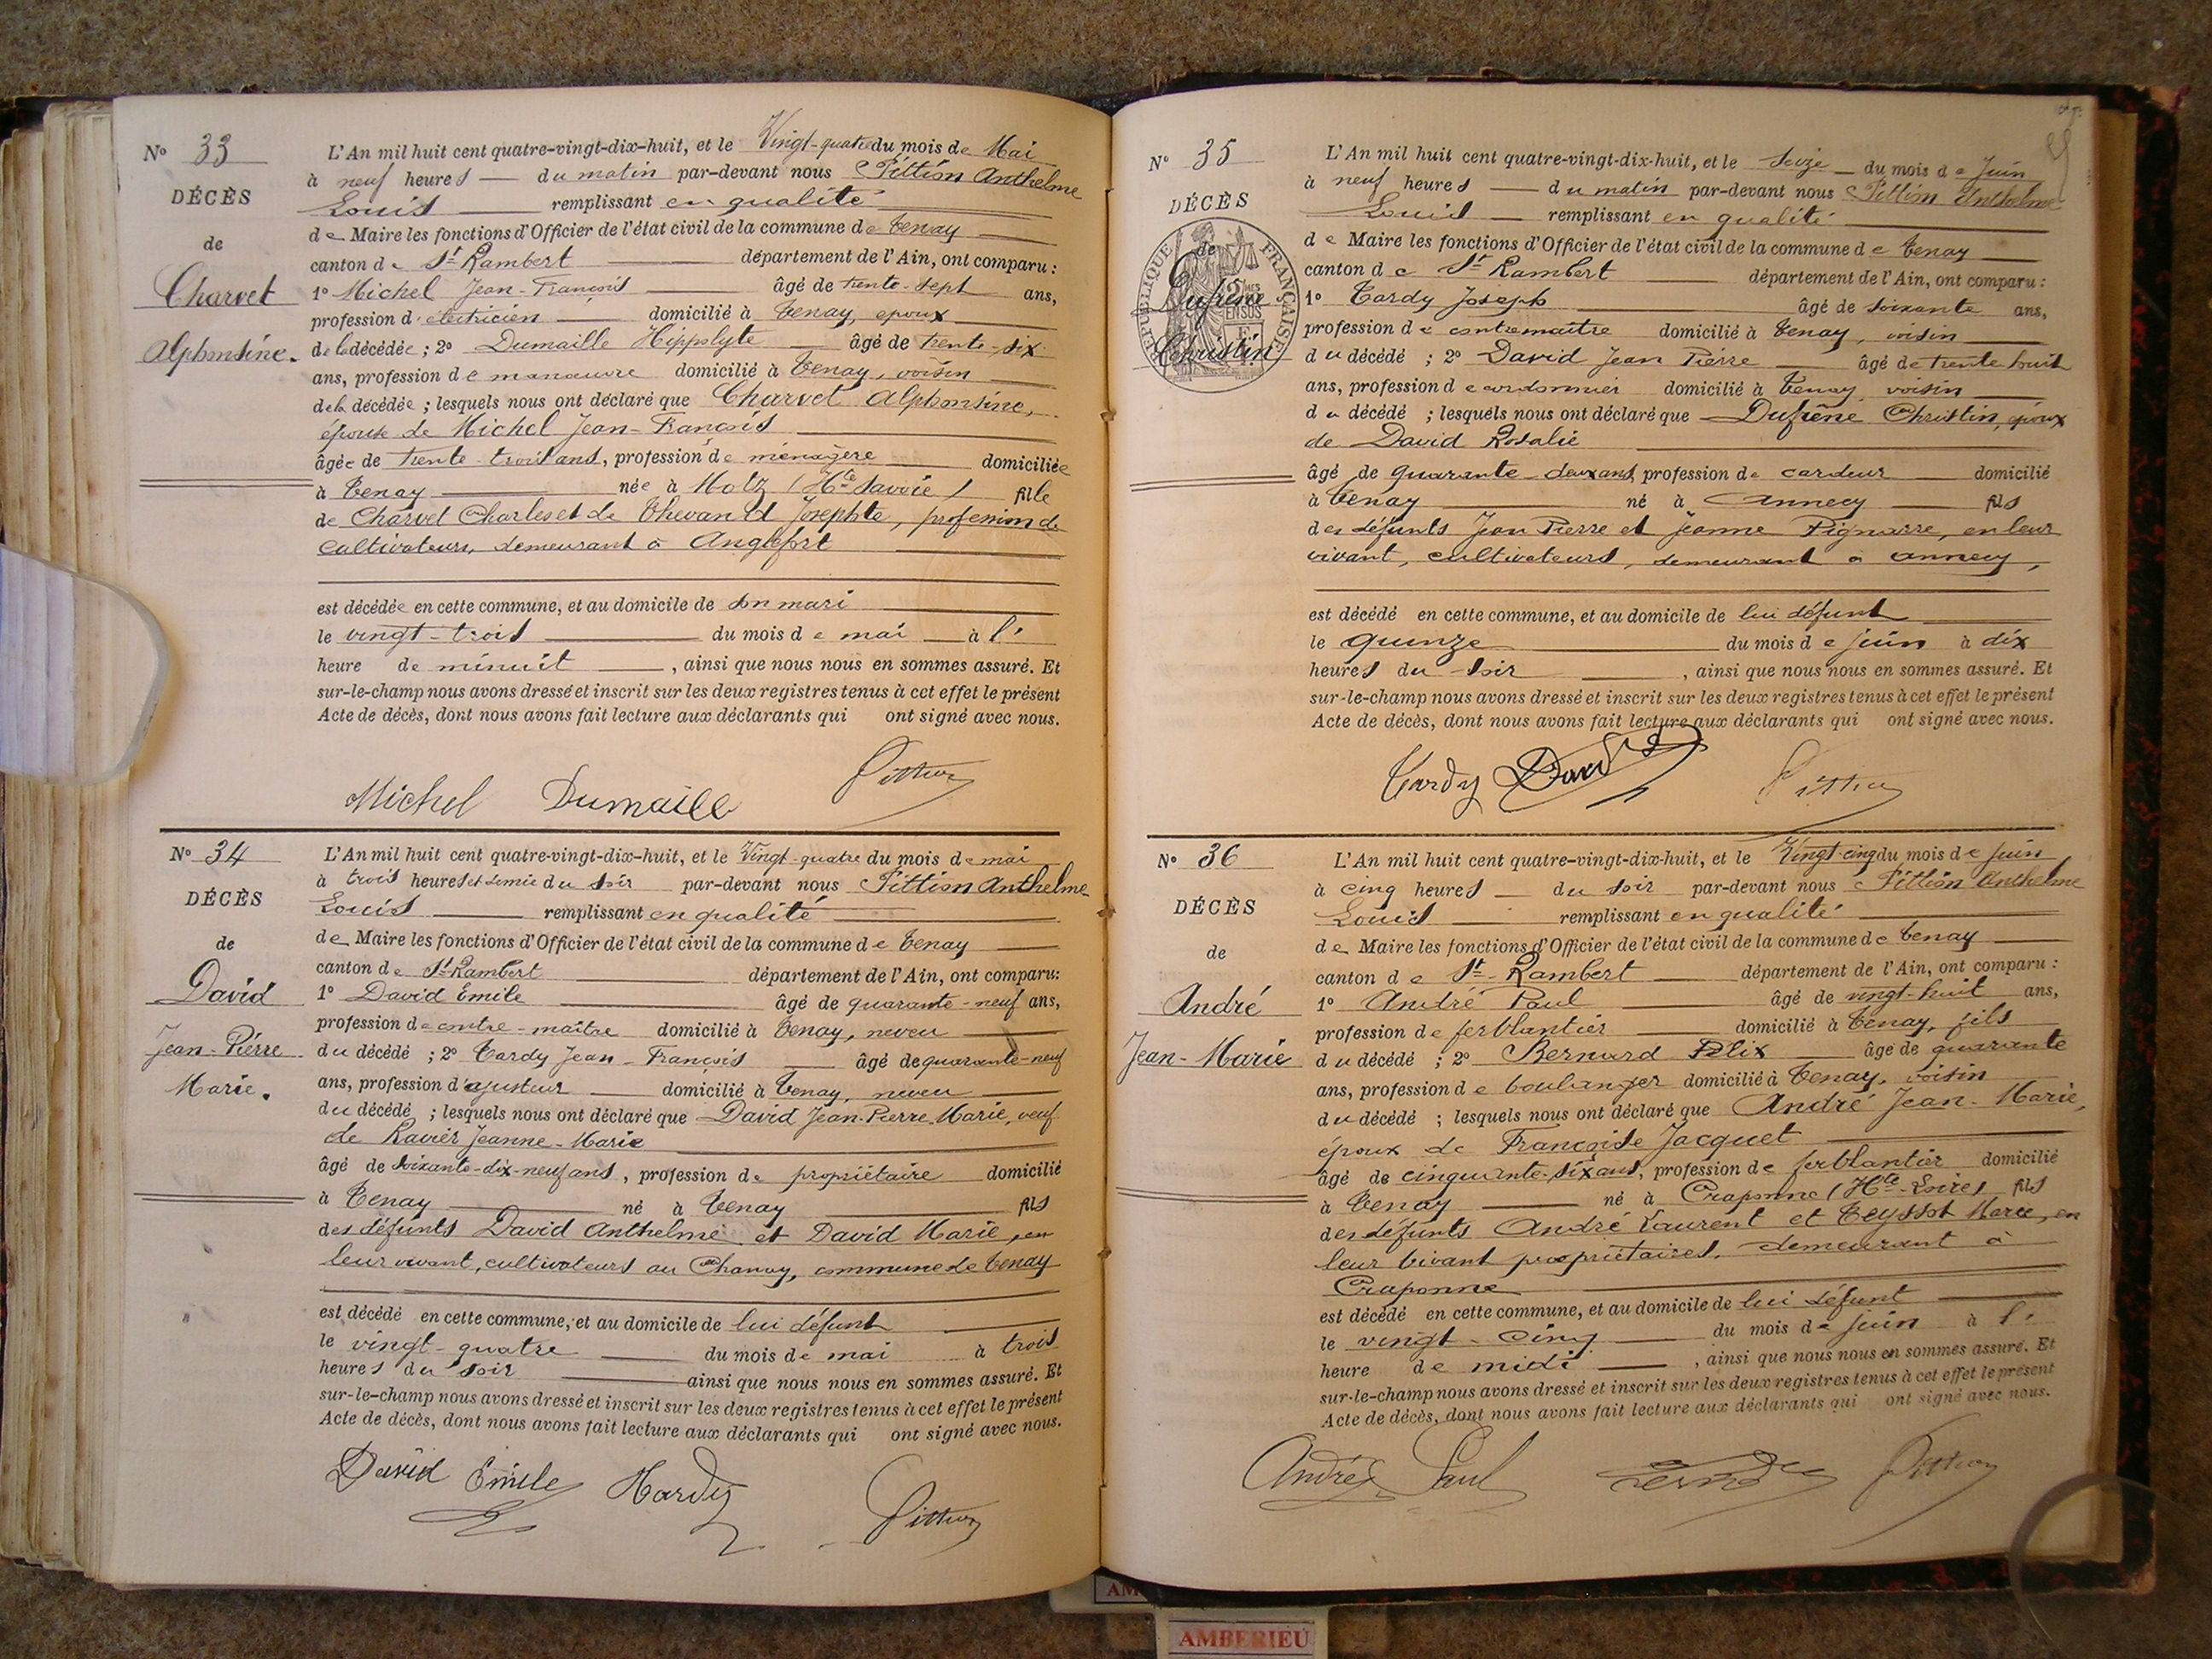 N° 33
DÉCÈS
de
Charvet
Alphonsine.
L'An mil huit cent quatre-vingt-dix-huit, et le Vingt-quatre du mois de Mai
à neuf heures du matin par-devant nous Pittion Anthelme
Louis remplissant en qualité
de Maire les fonctions d'Officier de l'état civil de la commune de Tenay
canton de St Rambert département de l'Ain, ont comparu :
1° Michel Jean-François âgé de trente-sept ans,
profession d'électricien domicilié à Tenay, époux
de la décédée ; 2° Dumaille Hippolyte âgé de trente-six
ans, profession de manœuvre domicilié à Tenay, voisin
de la décédée ; lesquels nous ont déclaré que Charvet Alphonsine,
épouse de Michel Jean-François
âgée de trente-trois ans, profession de ménagère domiciliée
à Tenay née à Motz (Hte Savoie) fille
de Charvet Charles et de Thevand Josephte, profession de
cultivateurs, demeurant à Anglefort
est décédée en cette commune, et au domicile de son mari
le vingt-trois du mois de mai à l'
heure de minuit, ainsi que nous nous en sommes assuré. Et
sur-le-champ nous avons dressé et inscrit sur les deux registres tenus à cet effet le présent
Acte de décès, dont nous avons fait lecture aux déclarants qui ont signé avec nous.
Michel Dumaille Pittion
N° 34
DÉCÈS
de
David
Jean-Pierre
Marie.
L'An mil huit cent quatre-vingt-dix-huit, et le Vingt-quatre du mois de mai
à trois heures et demie du soir par-devant nous Pittion Anthelme
Louis remplissant en qualité
de Maire les fonctions d'Officier de l'état civil de la commune de Tenay
canton de St Rambert département de l'Ain, ont comparu :
1° David Emile âgé de quarante-neuf ans,
profession de contre-maître domicilié à Tenay, neveu
du décédé ; 2° Tardy Jean-François âgé de quarante-neuf
ans, profession d'ajusteur domicilié à Tenay, neveu
du décédé ; lesquels nous ont déclaré que David Jean-Pierre Marie, veuf
de Ravier Jeanne-Marie
âgé de soixante-dix-neuf ans, profession de propriétaire domicilié
à Tenay né à Tenay fils
des défunts David Anthelme et David Marie, en
leur vivant, cultivateurs au Chanay, commune de Tenay
est décédé en cette commune, et au domicile de lui défunt
le vingt-quatre du mois de mai à trois
heures du soir ainsi que nous nous en sommes assuré. Et
sur-le-champ nous avons dressé et inscrit sur les deux registres tenus à cet effet le présent
Acte de décès, dont nous avons fait lecture aux déclarants qui ont signé avec nous.
David Emile Hardy Pittion
N° 35
DÉCÈS
de
Dufrêne
Christin
RÉPUBLIQUE FRANÇAISE
L'An mil huit cent quatre-vingt-dix-huit, et le Seize du mois de Juin
à neuf heures du matin par-devant nous Pittion Anthelme
Louis remplissant en qualité
de Maire les fonctions d'Officier de l'état civil de la commune de Tenay
canton de St Rambert département de l'Ain, ont comparu :
1° Tardy Joseph âgé de soixante ans,
profession de contremaître domicilié à Tenay, voisin
du décédé ; 2° David Jean Pierre âgé de trente huit
ans, profession de cordonnier domicilié à Tenay, voisin
du décédé ; lesquels nous ont déclaré que Dufrêne Christin, époux
de David Rosalie
âgé de quarante-deux ans, profession de cardeur domicilié
à Tenay né à Annecy fils
des défunts Jean Pierre et Jeanne Pignarre, en leur
vivant, cultivateurs, demeurant à Annecy,
est décédé en cette commune, et au domicile de lui défunt
le quinze du mois de juin à dix
heures du soir, ainsi que nous nous en sommes assuré. Et
sur-le-champ nous avons dressé et inscrit sur les deux registres tenus à cet effet le présent
Acte de décès, dont nous avons fait lecture aux déclarants qui ont signé avec nous.
Tardy David Pittion
N° 36
DÉCÈS
de
André
Jean-Marie
L'An mil huit cent quatre-vingt-dix-huit, et le Vingt-cinq du mois de juin
à cinq heures du soir par-devant nous Pittion Anthelme
Louis remplissant en qualité
de Maire les fonctions d'Officier de l'état civil de la commune de Tenay
canton de St-Rambert département de l'Ain, ont comparu :
1° André Paul âgé de vingt-huit ans,
profession de ferblantier domicilié à Tenay, fils
du décédé ; 2° Bernard Félix âgé de quarante
ans, profession de boulanger domicilié à Tenay, voisin
du décédé ; lesquels nous ont déclaré que André Jean-Marie,
époux de Françoise Jacquet
âgé de cinquante-six ans, profession de ferblantier domicilié
à Tenay né à Craponne (Hte-Loire) fils
des défunts André Laurent et Teyssot Marie, en
leur vivant propriétaires, demeurant à
Craponne
est décédé en cette commune, et au domicile de lui défunt
le vingt-cinq du mois de juin à l'
heure de midi, ainsi que nous nous en sommes assuré. Et
sur-le-champ nous avons dressé et inscrit sur les deux registres tenus à cet effet le présent
Acte de décès, dont nous avons fait lecture aux déclarants qui ont signé avec nous.
André Paul Pittion
AM
AMBERIEU